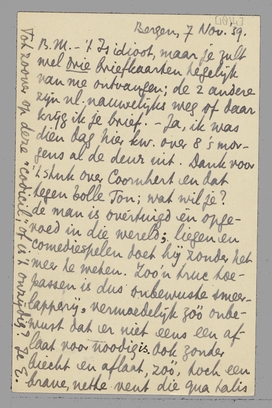 Bergen, 7 Nov. 39.
B.M. - 't Is idioot, maar je zult
wel drie briefkaarten tegelijk
van me ontvangen; de 2 andere
zijn nl. nauwelijks weg of daar
krijg ik je brief. - Ja, ik was
dien dag hier kw. over 8 's mor-
gens al de deur uit. Dank voor
't stuk over Coornhert en dat
tegen bolle Ton; wat wil je?
de man is overtuigd en opge-
voed in die wereld; liegen en
comediespelen doet hij zonder het
meer te weten. Zoo'n truc toe-
passen is dus onbewuste smeer-
lapperij, vermoedelijk zoo onbe-
wust dat er niet eens een af-
laat voor noodig is. Ook zonder
biecht en aflaat, zoo, toch een
brave, nette vent die qua talis
Tot zoover op deze "radicail", of is 't onzijdig? Je E.